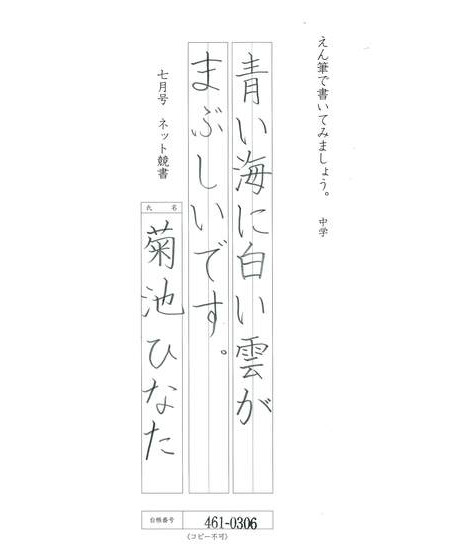 えん筆で書いてみましょう。 中学
青い海に白い雲が
まぶしいです。
七月号 ネット競書
氏名
菊池ひなた
台帳番号 461-0306
〈コピー不可〉